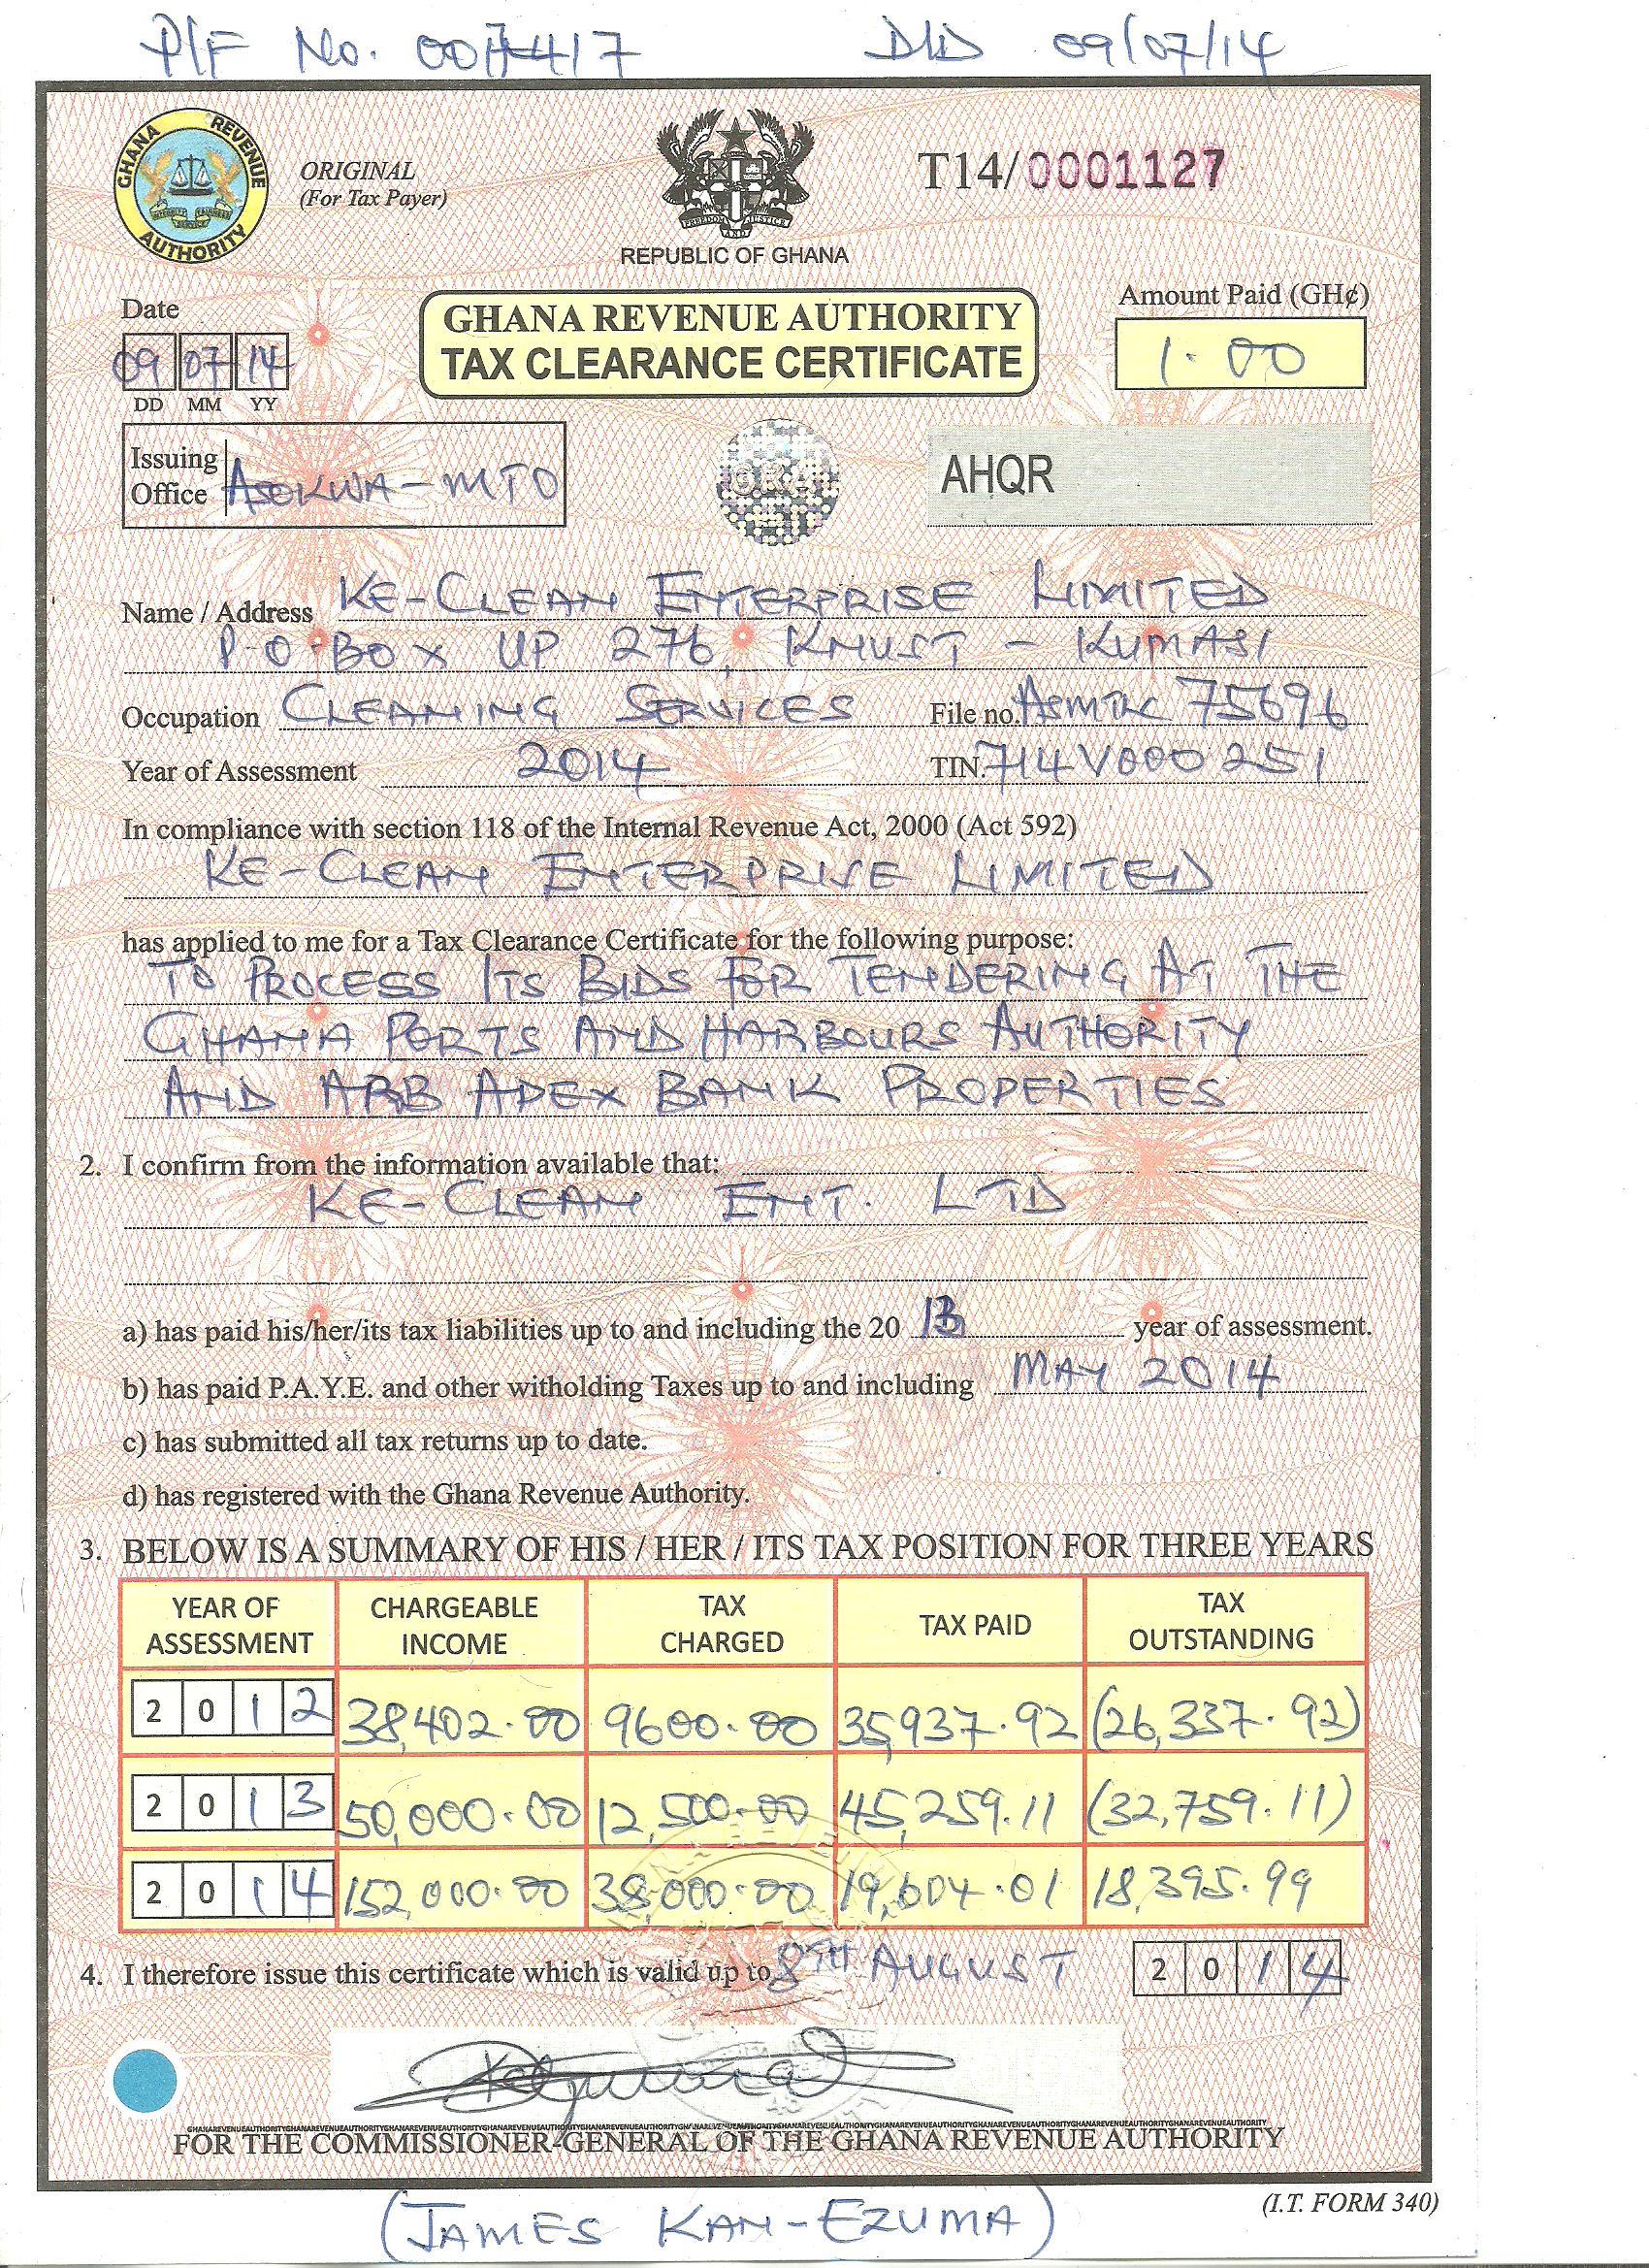 P/F No. 0017417 DD 09/07/14
GHANA REVENUE AUTHORITY
ORIGINAL
(For Tax Payer)
FREEDOM AND JUSTICE
REPUBLIC OF GHANA
T14/0001127
Date
09 07 14
DD MM YY
GHANA REVENUE AUTHORITY
TAX CLEARANCE CERTIFICATE
Amount Paid (GH¢)
1.00
Issuing
Office ASOKWA - MTO
GRA
AHQR
Name / Address KE-CLEAN ENTERPRISE LIMITED
P.O. BOX UP 276, KNUST - KUMASI
Occupation CLEANING SERVICES File no. 75696
Year of Assessment 2014 TIN. 714V000251
In compliance with section 118 of the Internal Revenue Act, 2000 (Act 592)
KE-CLEAN ENTERPRISE LIMITED
has applied to me for a Tax Clearance Certificate for the following purpose:
TO PROCESS ITS BIDS FOR TENDERING AT THE
GHANA PORTS AND HARBOURS AUTHORITY
AND ARB APEX BANK PROPERTIES
2. I confirm from the information available that:
KE-CLEAN ENT. LTD
a) has paid his/her/its tax liabilities up to and including the 20 13 year of assessment.
b) has paid P.A.Y.E. and other witholding Taxes up to and including MAY 2014
c) has submitted all tax returns up to date.
d) has registered with the Ghana Revenue Authority.
3. BELOW IS A SUMMARY OF HIS / HER / ITS TAX POSITION FOR THREE YEARS
YEAR OF ASSESSMENT CHARGEABLE INCOME TAX CHARGED TAX PAID TAX OUTSTANDING
2012 38,402.00 9600.00 35,937.92 (26,337.92)
2013 50,000.00 12,500.00 45,259.11 (32,759.11)
2014 152,000.00 38,000.00 19,604.01 18,395.99
4. I therefore issue this certificate which is valid up to 8TH AUGUST 2014
FOR THE COMMISSIONER-GENERAL OF THE GHANA REVENUE AUTHORITY
(I.T. FORM 340)
(JAMES KAN-EZUMA)